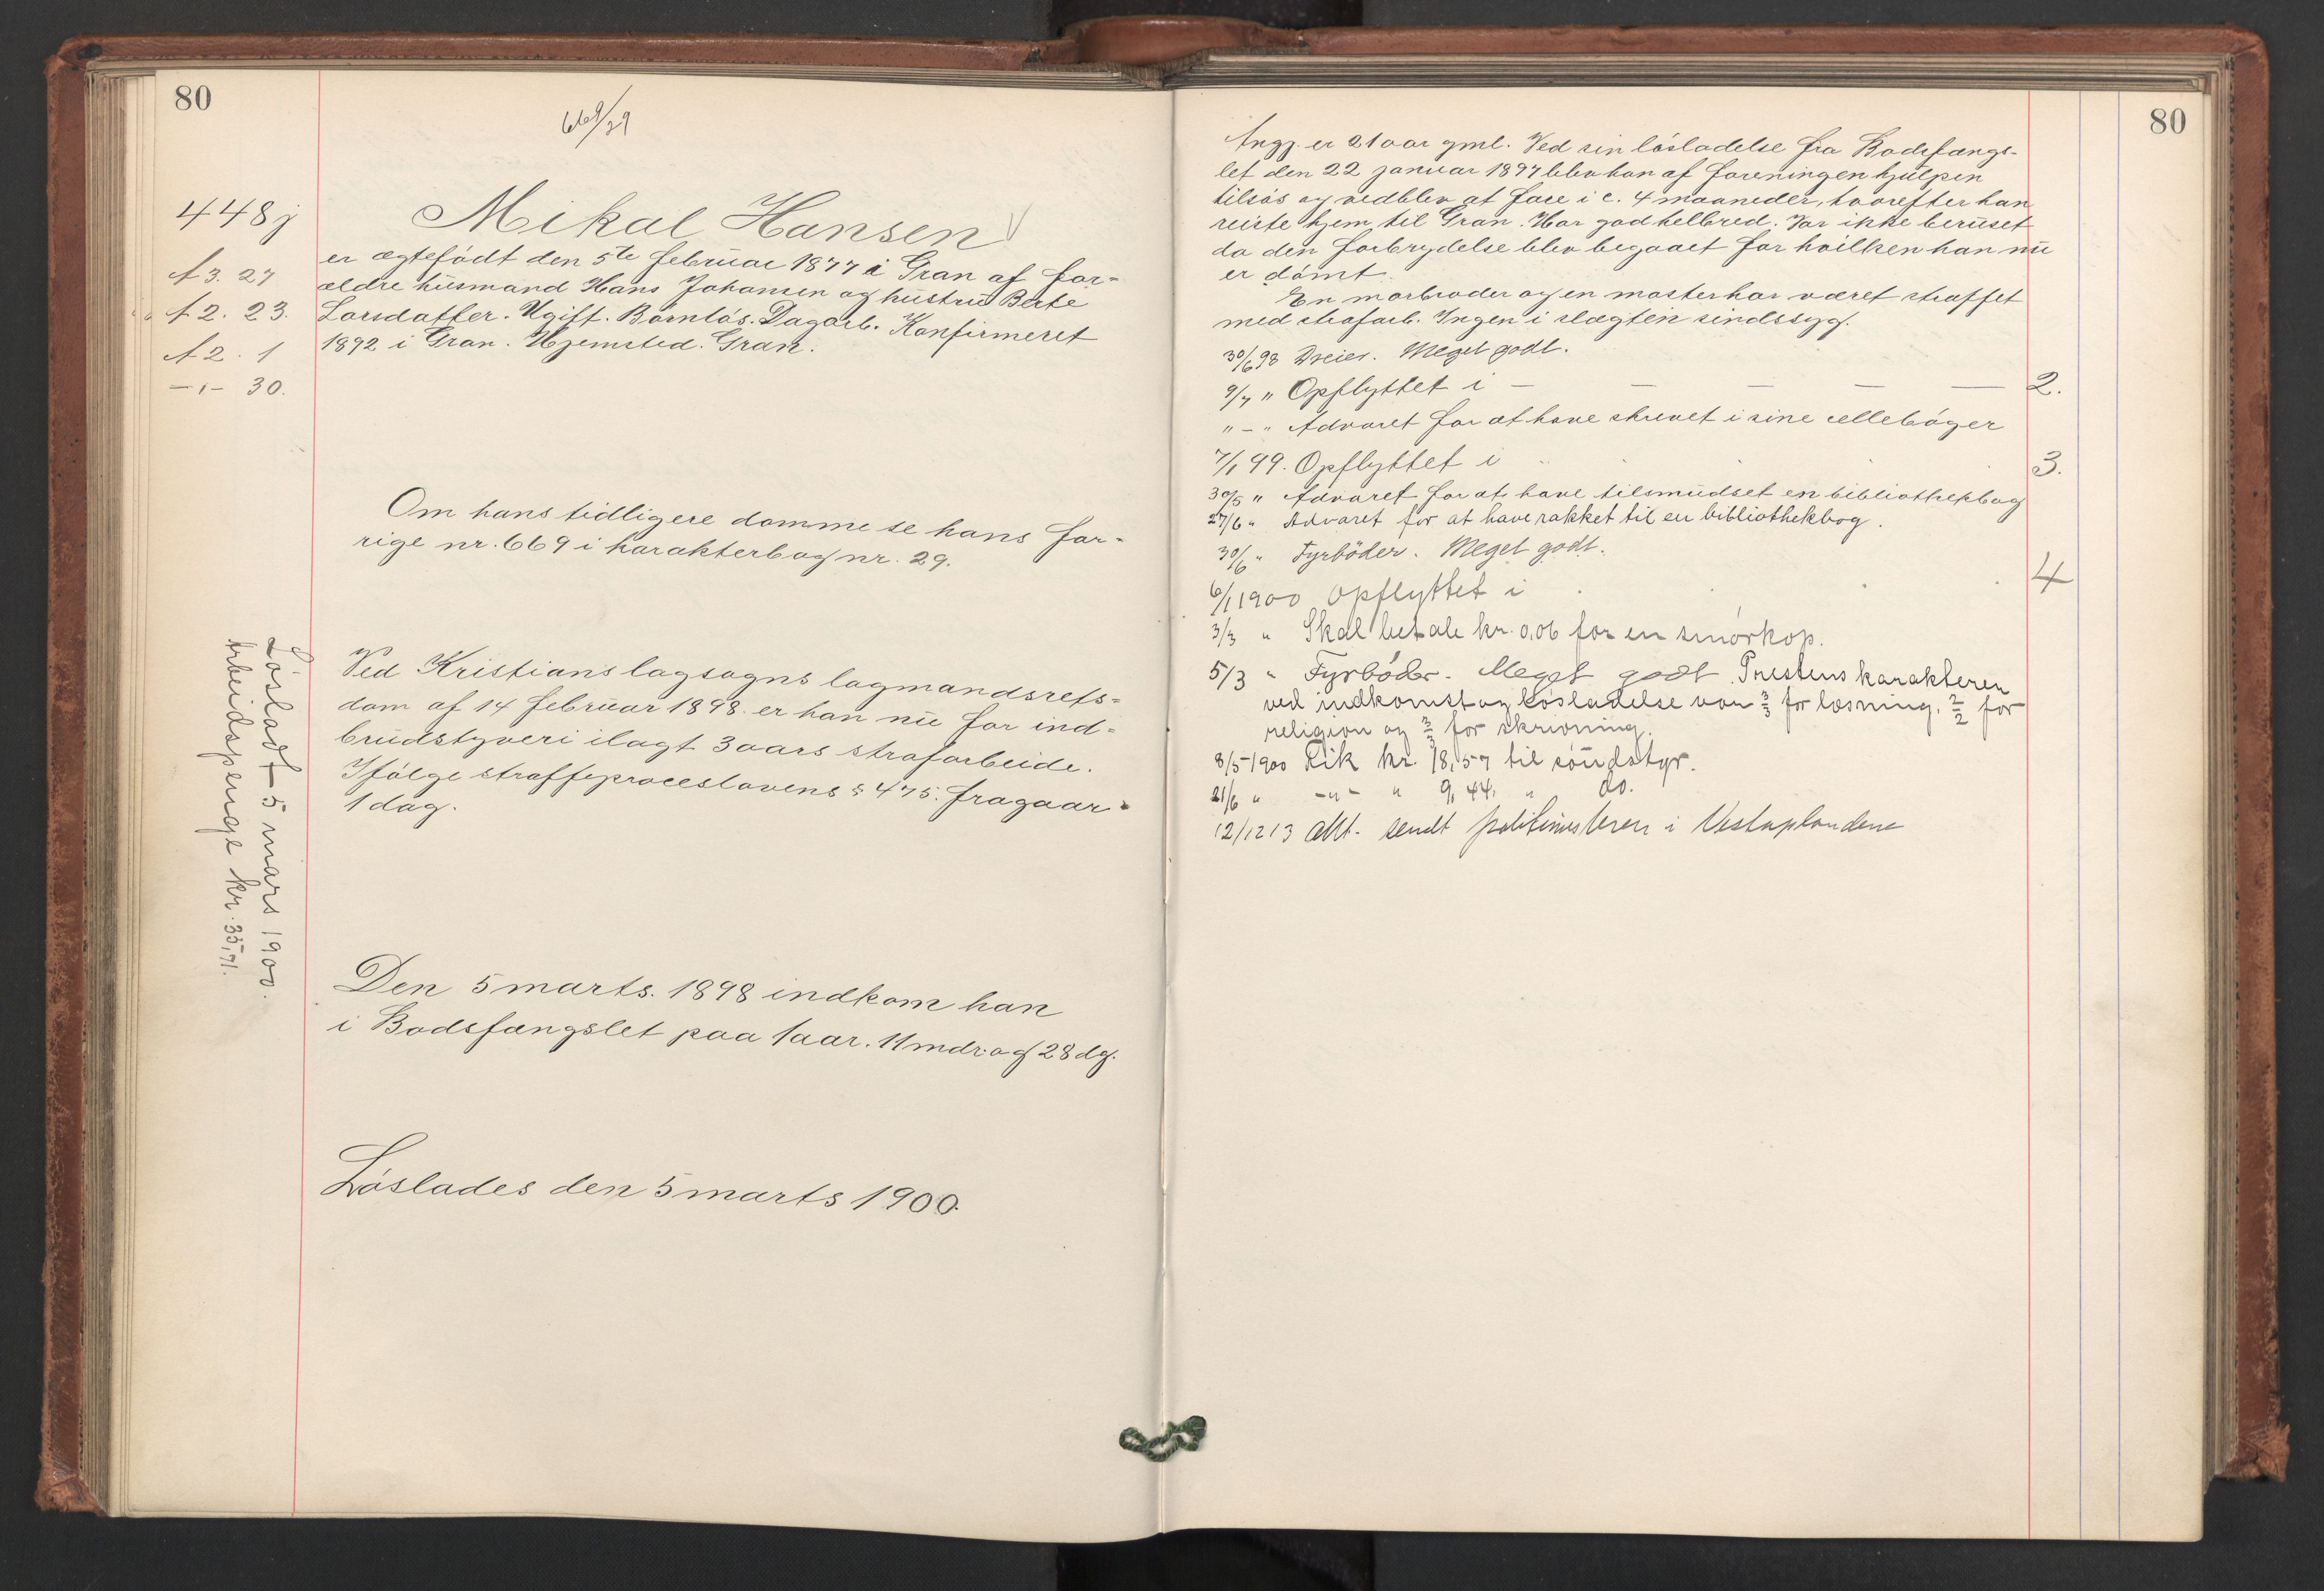 80
669/29
448j
A 3. 27
A 2. 23.
A 2. 1
—„— 30.
Mikal Hansen
er ægtefödt den 5te februar 1877 i Gran af for-
ældre husmand Hans Johansen og hustru Berte
Larsdatter. Ugift. Barnlös. Dagarb. Konfirmeret
1892 i Gran. Hjemsted. Gran.
Om hans tidligere domme se hans for-
rige nr. 669 i karakterbog nr. 29.
Ved Kristians lagsogns lagmandsrets-
dom af 14 februar 1898 er han nu for ind-
brudstyveri ilagt 3 aars strafarbeide.
Ifölge straffeproceslovens § 475. fragaar
1 dag.
Lösladt 5 mars 1900.
Arbeidspenge kr. 35,71.
Den 5 marts. 1898 indkom han
i Bodsfængslet paa 1 aar. 11 mdr. og 28 dg.
Löslades den 5 marts 1900.
80
Angj. er 21 aar gml. Ved sin lösladelse fra Bodsfængs-
let den 22 januar 1897 blev han af foreningen hjulpen
tilsös og vedblev at fare i c. 4 maaneder, hvorefter han
reiste hjem til Gran. Har god helbred. Var ikke beruset
da den forbrydelse blev begaaet for hvilken han nu
er dömt.
En morbroder og en moster har været straffet
med strafarb. Ingen i slægten sindssyg.
30/6 98 Dreier. Meget godt.
9/7 " Opflyttet i — — — — — 2.
" - " Advaret for at have skrevet i sine celleböger
7/1 99. Opflyttet i 3.
30/5 " Advaret for at have tilsmudset en bibliothekbog
27/6 " Advaret for at have rakket til en bibliothekbog.
30/6 " Fyrböder. Meget godt.
6/1 1900 Opflyttet i 4
3/3 " Skal betale kr. 0,06 for en smörkop.
5/3 " Fyrböder. Meget godt. Prestens karakterer
ved indkomst og lösladelse var 3/3 for læsning, 2/2 for
religion og 3/3 for skrivning.
8/5 1900 Fik kr. 18,57 til söndstyr.
21/6 " -"- " 9,44. " do.
12/12 13 Akt. sendt politimesteren i Vestoplandene